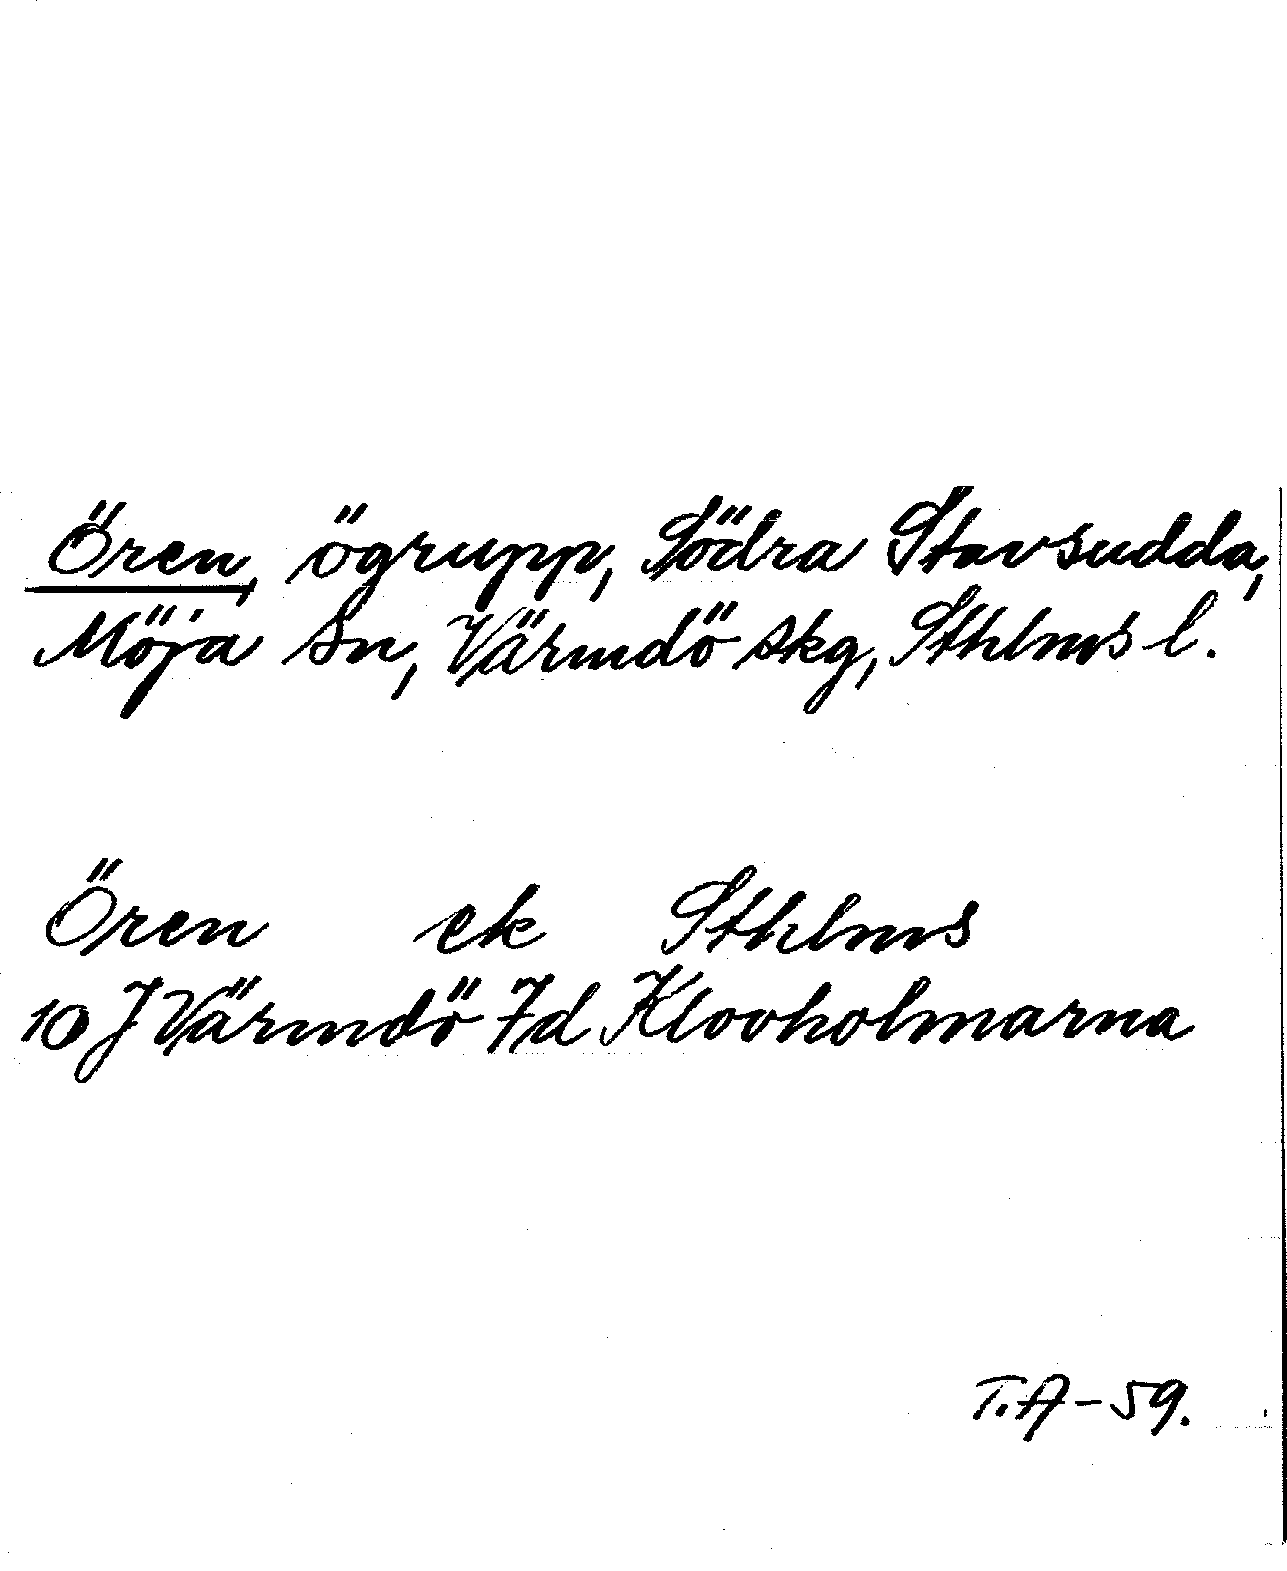 Ören, ögrupp, Södra Stavsudda,
Möja sn, Värmdö skg, Sthlms l.
Ören ek Sthlms
10 J Värmdö 7d Klovholmarna
T.A-59.